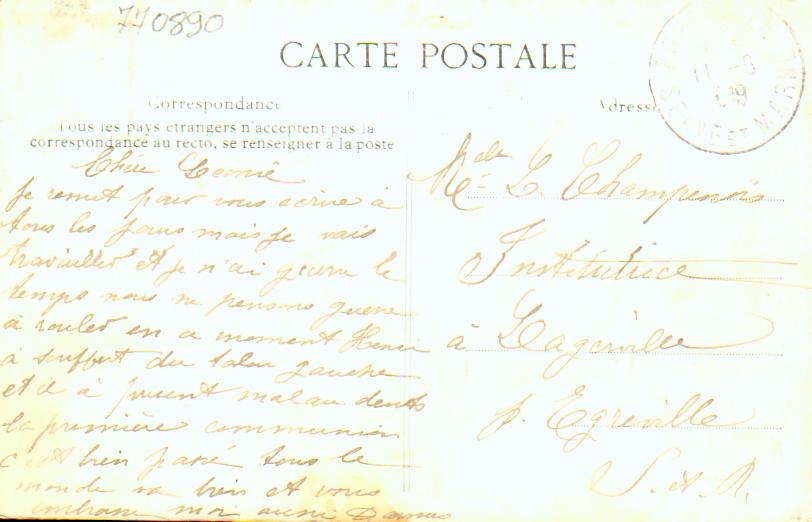 770890
CARTE POSTALE
Correspondance
Tous les pays étrangers n'acceptent pas la
correspondance au recto, se renseigner à la poste
Adresse
11 -6
09
SEINE ET MARNE
Chère
Je pour vous écrire à
tous les jours mais je vais
travailler et je n'ai guerre le
temps nous ne pensons guerre
à rouler en ce moment Henri
à souffert du talon gauche
et il à présent mal au dents
la première communion
c'est bien passé tous le
monde va bien et vous
embrasse moi aussi
Melle L. Champenois
Institutrice
à Lagerville
p. Egreville
S. et M.